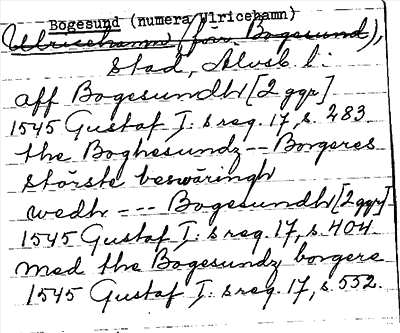 Bogesund (numera Ulricehamn)
Ulricehamn (förr Bogesund),
Stad, Älvsb. l.
aff Bogesundh [2 ggr]
1545 Gustaf I:s reg. 17, s. 283.
the Boghesundz -- Borgeres
störste beswäringh
wedh --- Bogesundh [2 ggr]
1545 Gustaf I:s reg. 17, s. 404.
med the Bogesundz borgere
1545 Gustaf I:s reg. 17, s. 552.